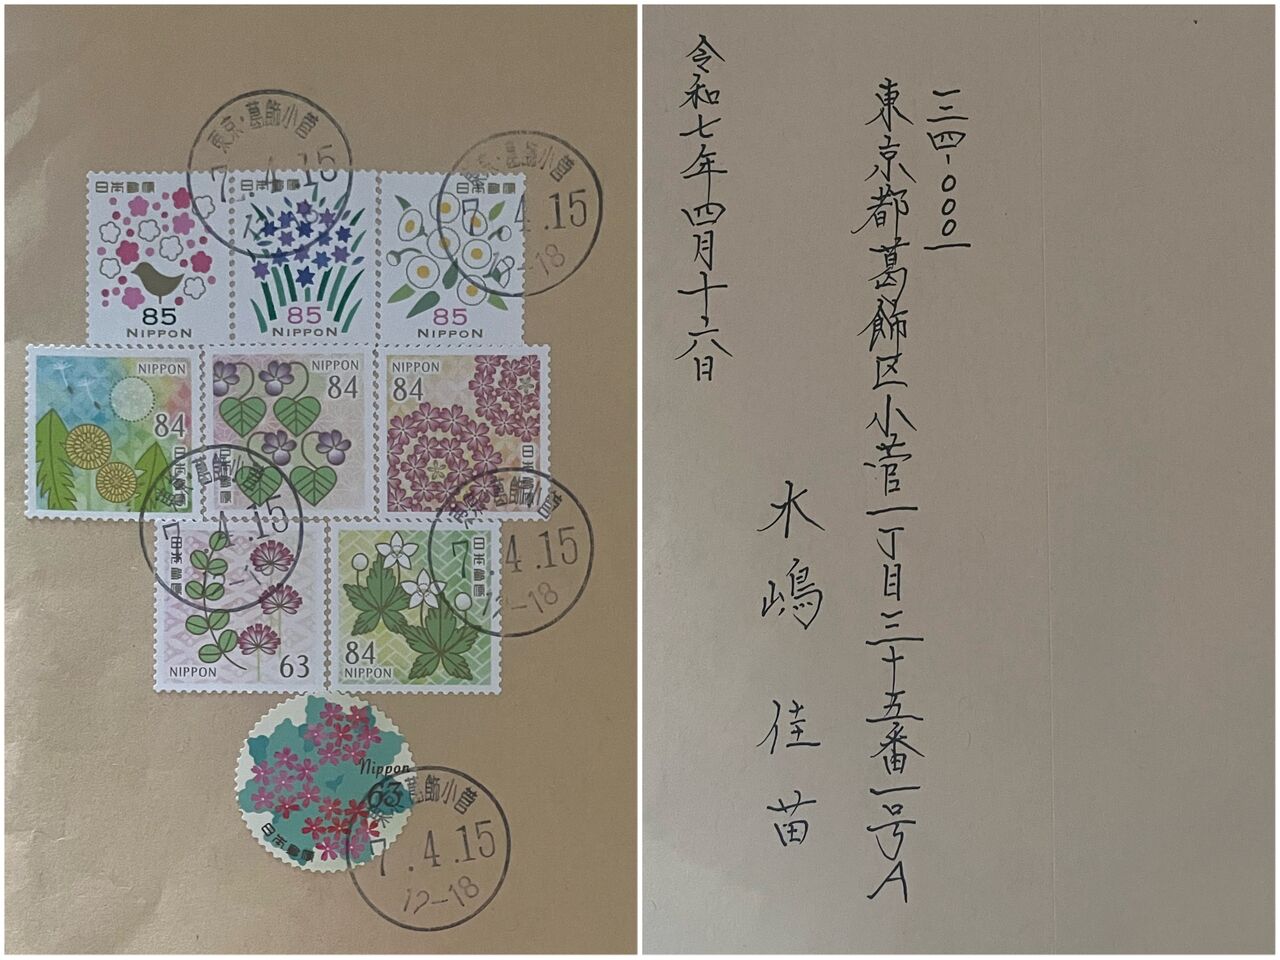 東京・葛飾小菅
7.4.15
12-18
東京・葛飾小菅
7.4.15
12-18
日本郵便
85
NIPPON
日本郵便
85
NIPPON
日本郵便
85
NIPPON
NIPPON
84
日本郵便
NIPPON
84
日本郵便
NIPPON
84
日本郵便
東京・葛飾小菅
7.4.15
12-18
東京・葛飾小菅
7.4.15
12-18
日本郵便
NIPPON
63
日本郵便
84
NIPPON
Nippon
63
日本郵便
東京・葛飾小菅
7.4.15
12-18
一二四-〇〇〇一
東京都葛飾区小菅一丁目三十五番一号A
水嶋佳苗
令和七年四月十六日